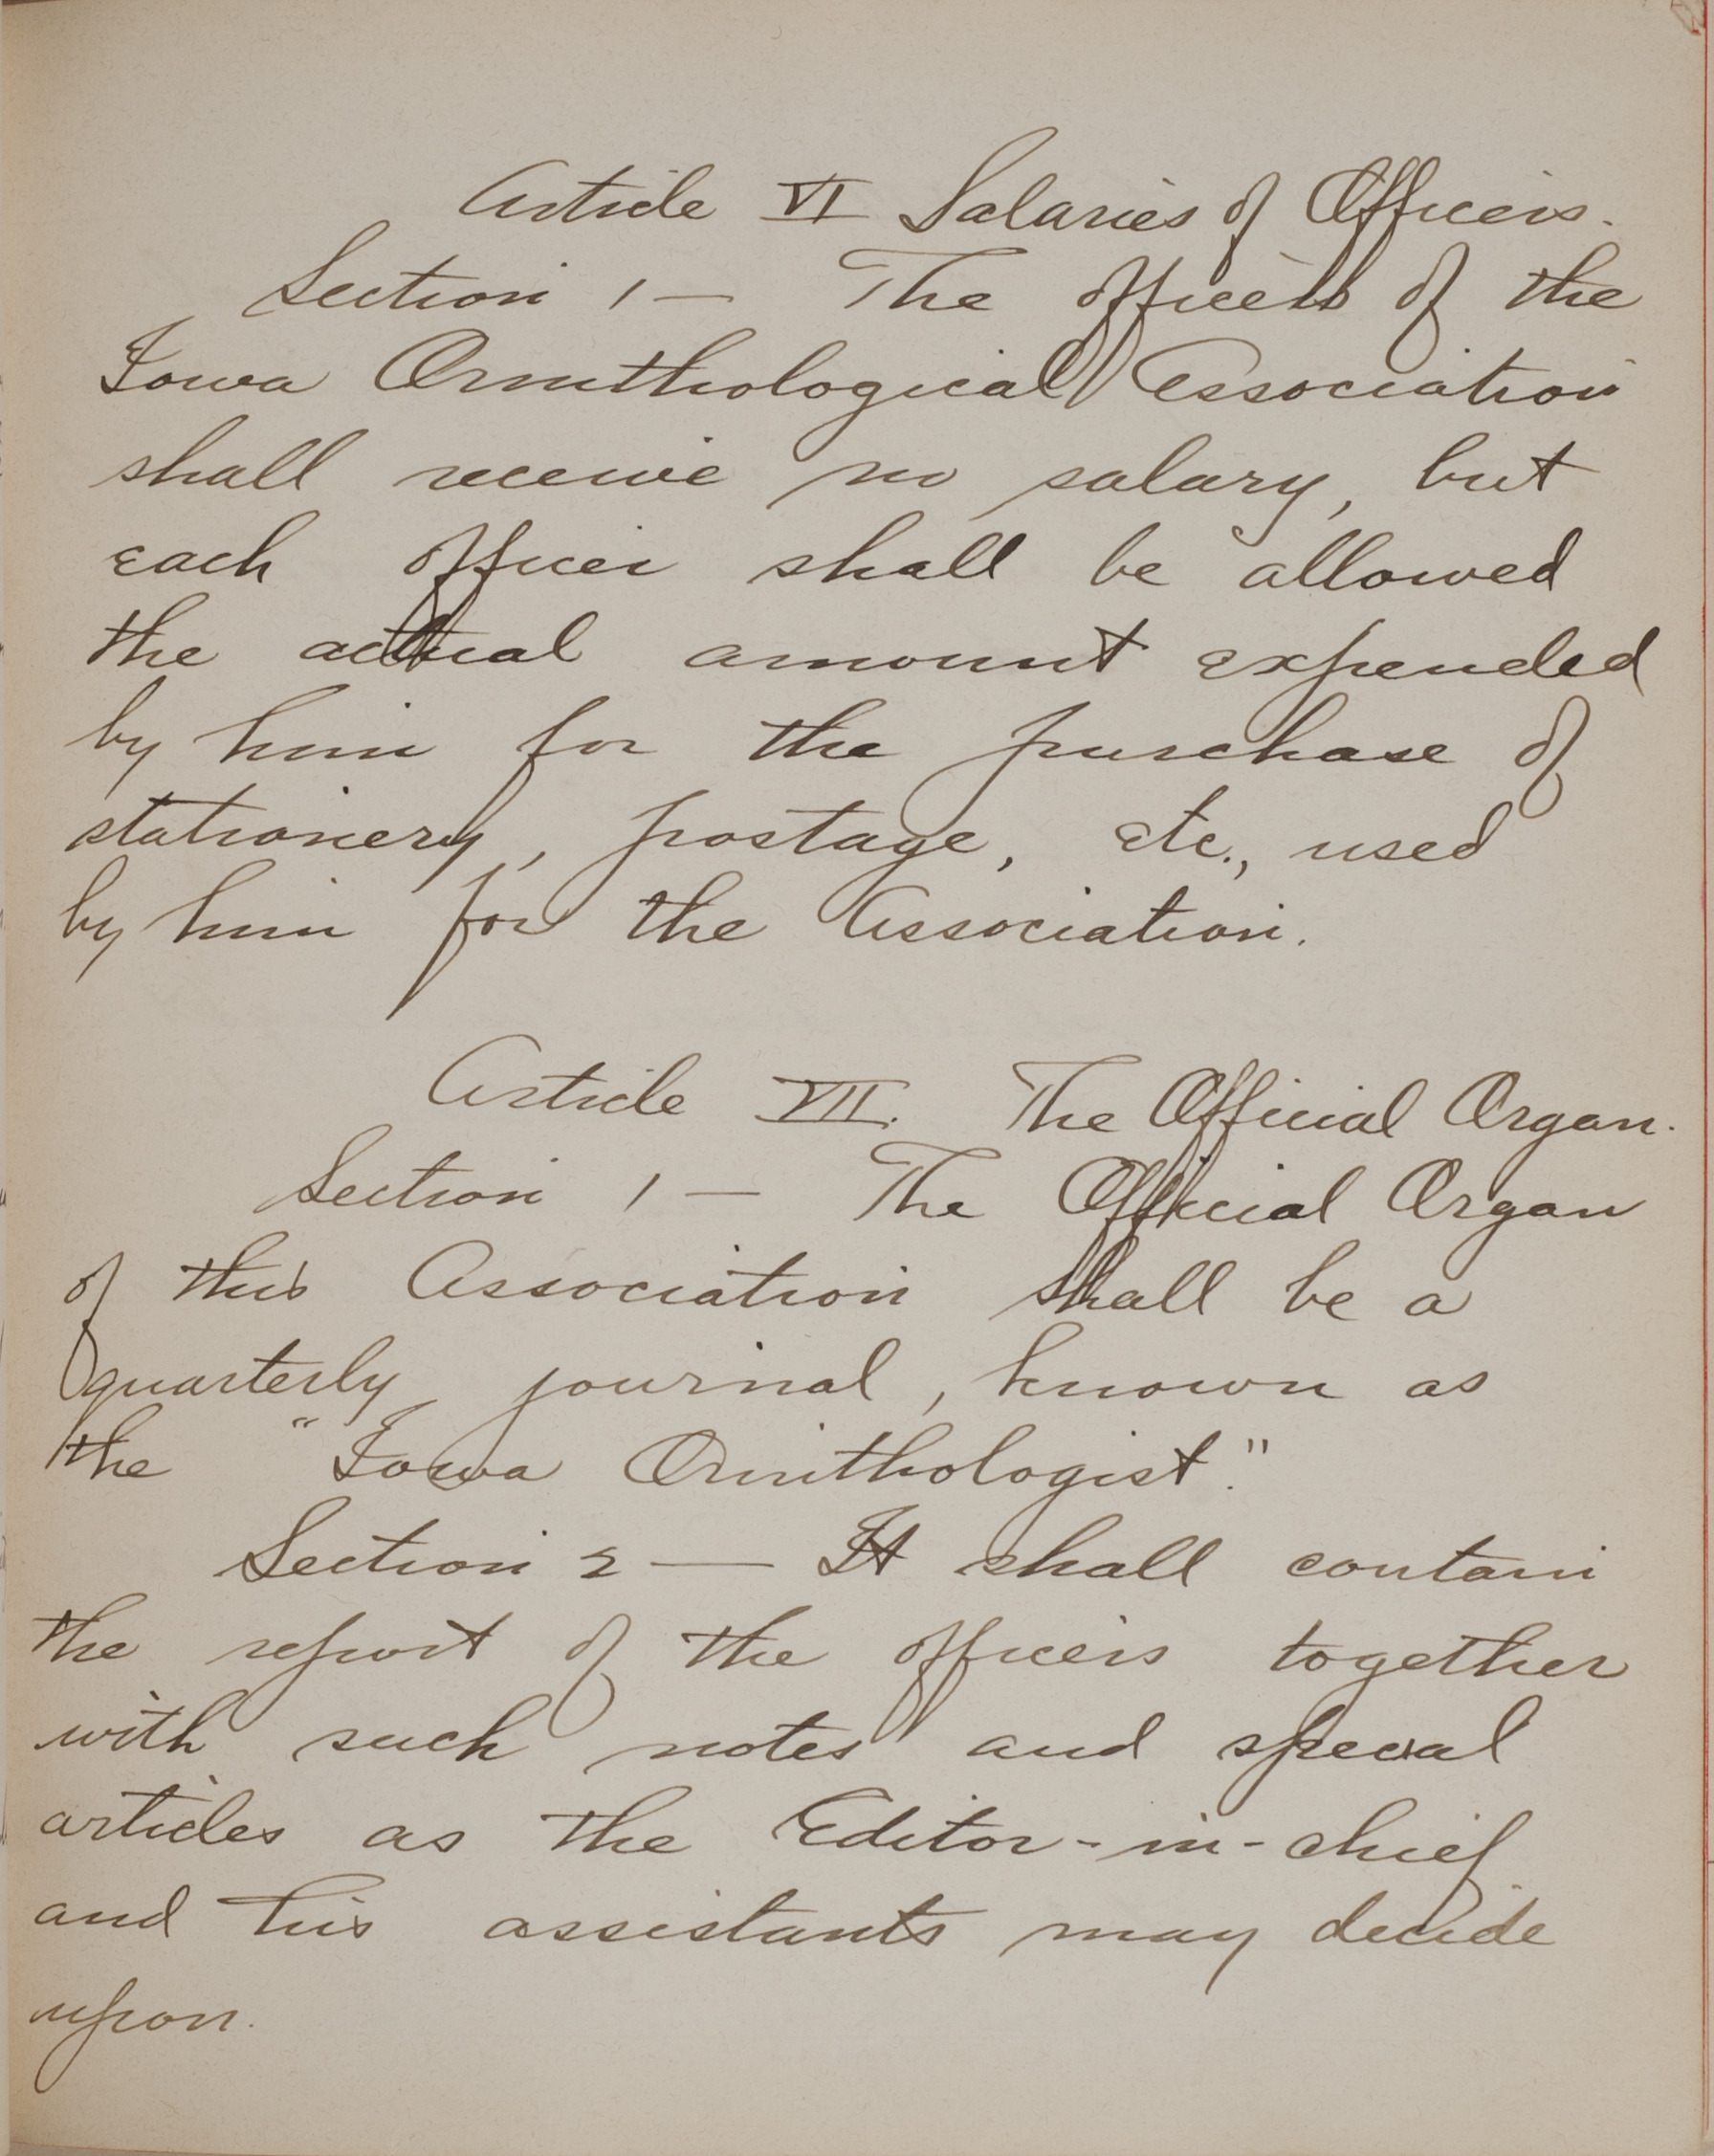 Article VI Salaries of Officers.
Section 1 — The officers of the
Iowa Ornithological Association
shall receive no salary, but
each officer shall be allowed
the actual amount expended
by him for the purchase of
stationery, postage, etc., used
by him for the Association.
Article VII. The Official Organ.
Section 1 — The Official Organ
of this Association shall be a
quarterly journal, known as
the "Iowa Ornithologist."
Section 2 — It shall contain
the report of the officers together
with such notes and special
articles as the Editor-in-chief
and his assistants may decide
upon.